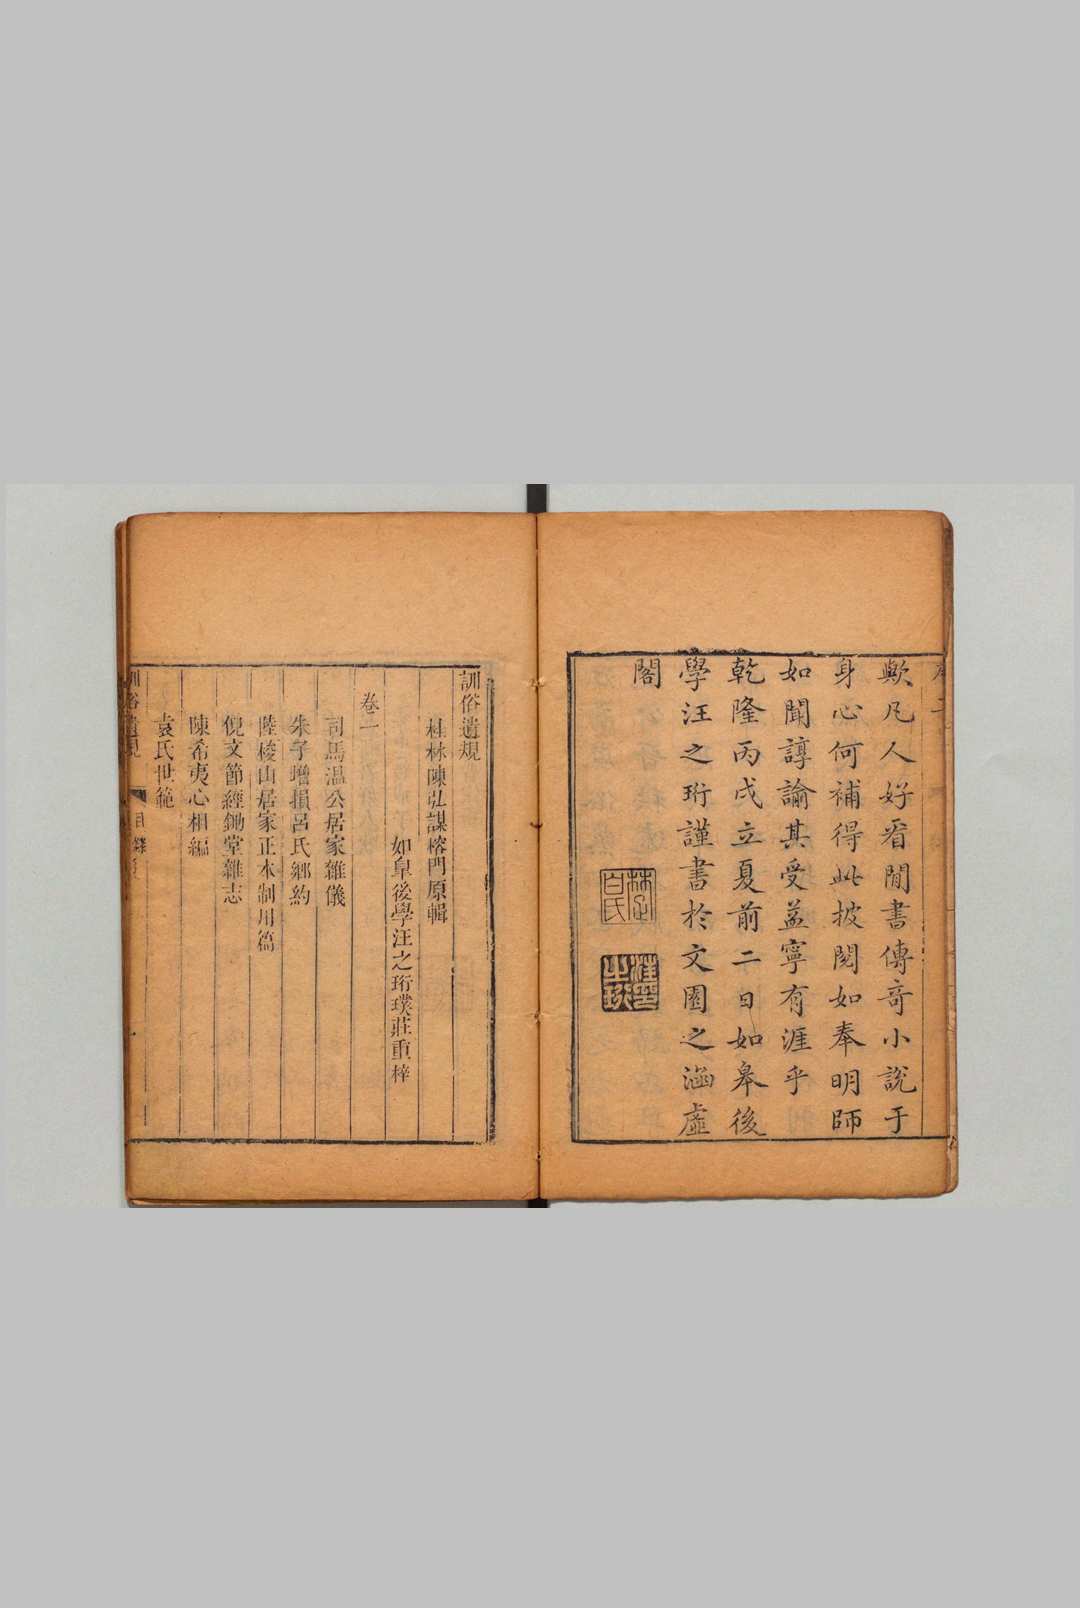 歟凡人好看閒書傳奇小說于
身心何補得此披閱如奉明師
如聞諄諭其受益寧有涯乎
乾隆丙戌立夏前二日如皋後
學汪之珩謹書於文園之涵虛
閣
訓俗遺規
桂林陳弘謀榕門原輯
如皐後學汪之珩璞莊重梓
卷一
司馬溫公居家雜儀
朱子增損呂氏鄉約
陸梭山居家正本制用篇
倪文節經鋤堂雜志
陳希夷心相編
袁氏世範
訓俗遺規 目錄